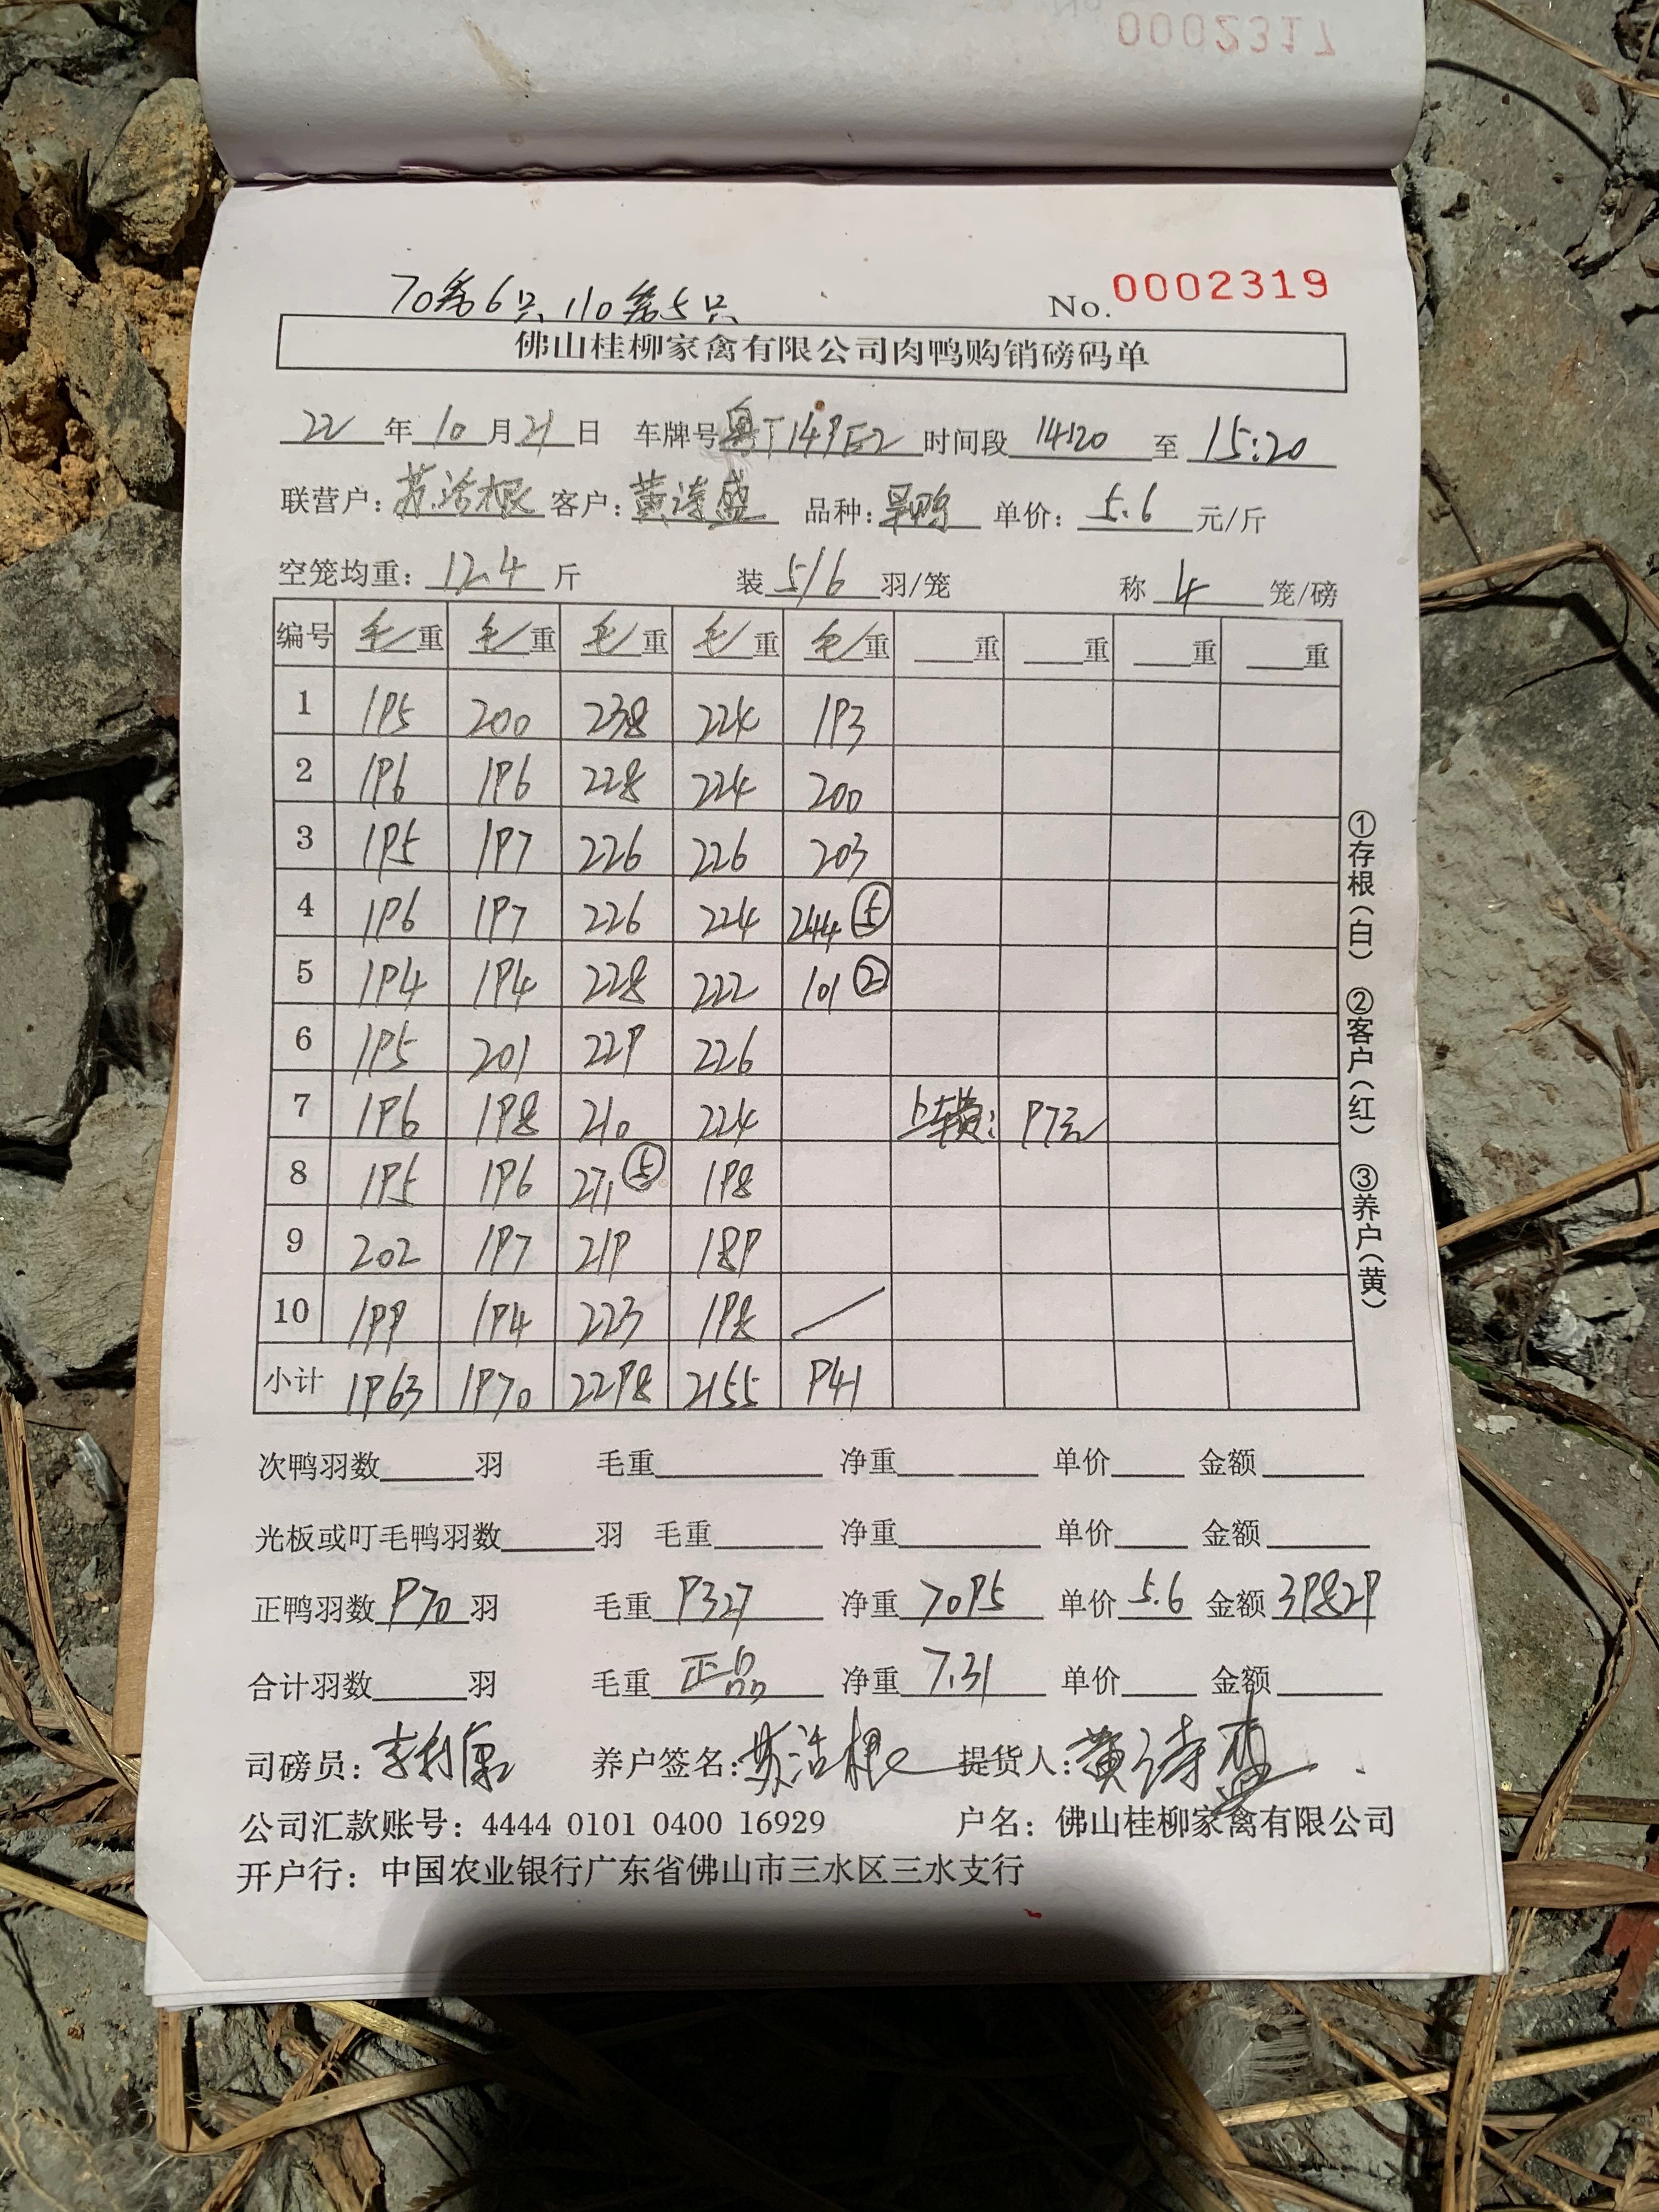 0002317
70笼6只 110笼5只
No. 0002319
佛山桂柳家禽有限公司肉鸭购销磅码单
22 年 10 月 21 日 车牌号 粤T149E2 时间段 14:20 至 15:20
联营户: 苏浩根 客户: 黄诗盛 品种: 旱鸭 单价: 5.6 元/斤
空笼均重: 12.4 斤 装 5/6 羽/笼 称 4 笼/磅
编号 毛重 毛重 毛重 毛重 毛重 重 重 重 重
1 195 200 238 224 193
2 196 196 228 224 200
3 195 197 226 226 203
4 196 197 226 224 244 ⑤
5 194 194 228 222 101 ②
6 195 201 229 226
7 196 198 210 224 上车费: 97元
8 195 196 271 ⑤ 198
9 202 197 219 189
10 199 194 223 198 /
小计 1963 1970 2298 2155 941
次鸭羽数 羽 毛重 净重 单价 金额
光板或叮毛鸭羽数 羽 毛重 净重 单价 金额
正鸭羽数 970 羽 毛重 9327 净重 7095 单价 5.6 金额 39829
合计羽数 羽 毛重 正品 净重 7.31 单价 金额
司磅员: 李利康 养户签名: 苏浩根 提货人: 黄诗盛
公司汇款账号: 4444 0101 0400 16929 户名: 佛山桂柳家禽有限公司
开户行: 中国农业银行广东省佛山市三水区三水支行
①存根(白) ②客户(红) ③养户(黄)